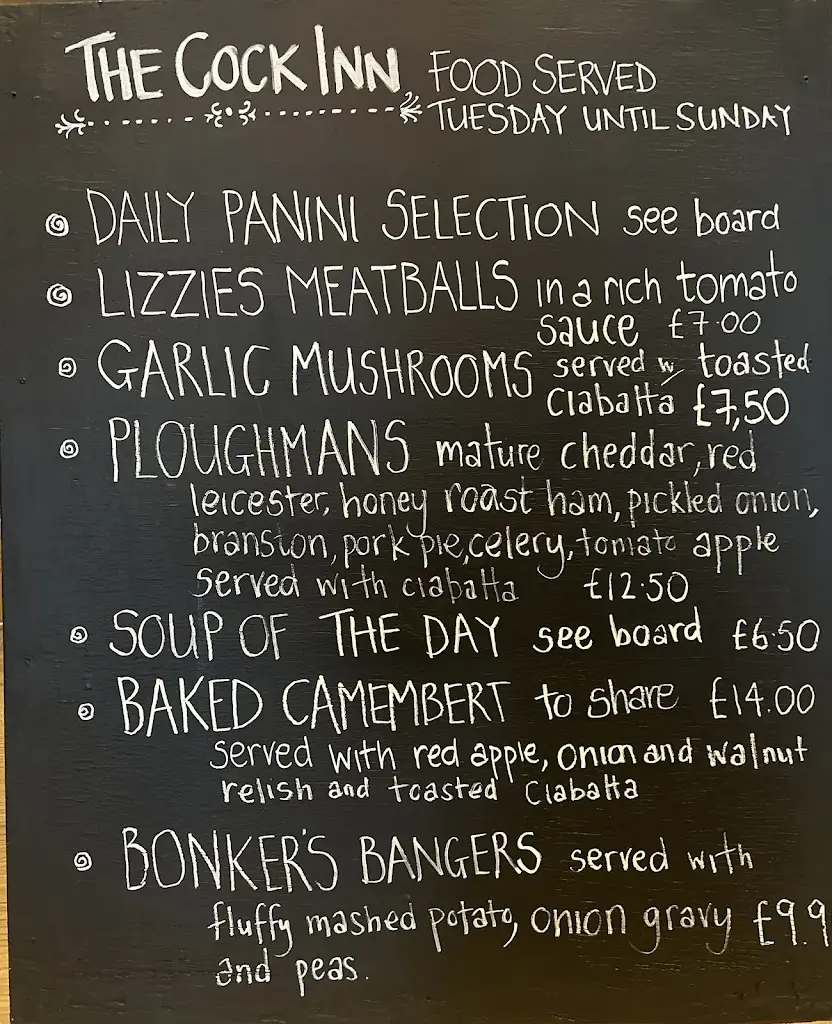 THE COCK INN FOOD SERVED
TUESDAY UNTIL SUNDAY
DAILY PANINI SELECTION see board
LIZZIES MEATBALLS in a rich tomato
sauce £7.00
GARLIC MUSHROOMS served w toasted
Ciabatta £7,50
PLOUGHMANS mature cheddar, red
leicester, honey roast ham, pickled onion,
branston, pork pie, celery, tomato apple
Served with ciabatta £12.50
SOUP OF THE DAY see board £6.50
BAKED CAMEMBERT to share £14.00
Served with red apple, onion and walnut
relish and toasted Ciabatta
BONKER'S BANGERS served with
fluffy mashed potato, onion gravy £9.9
and peas.